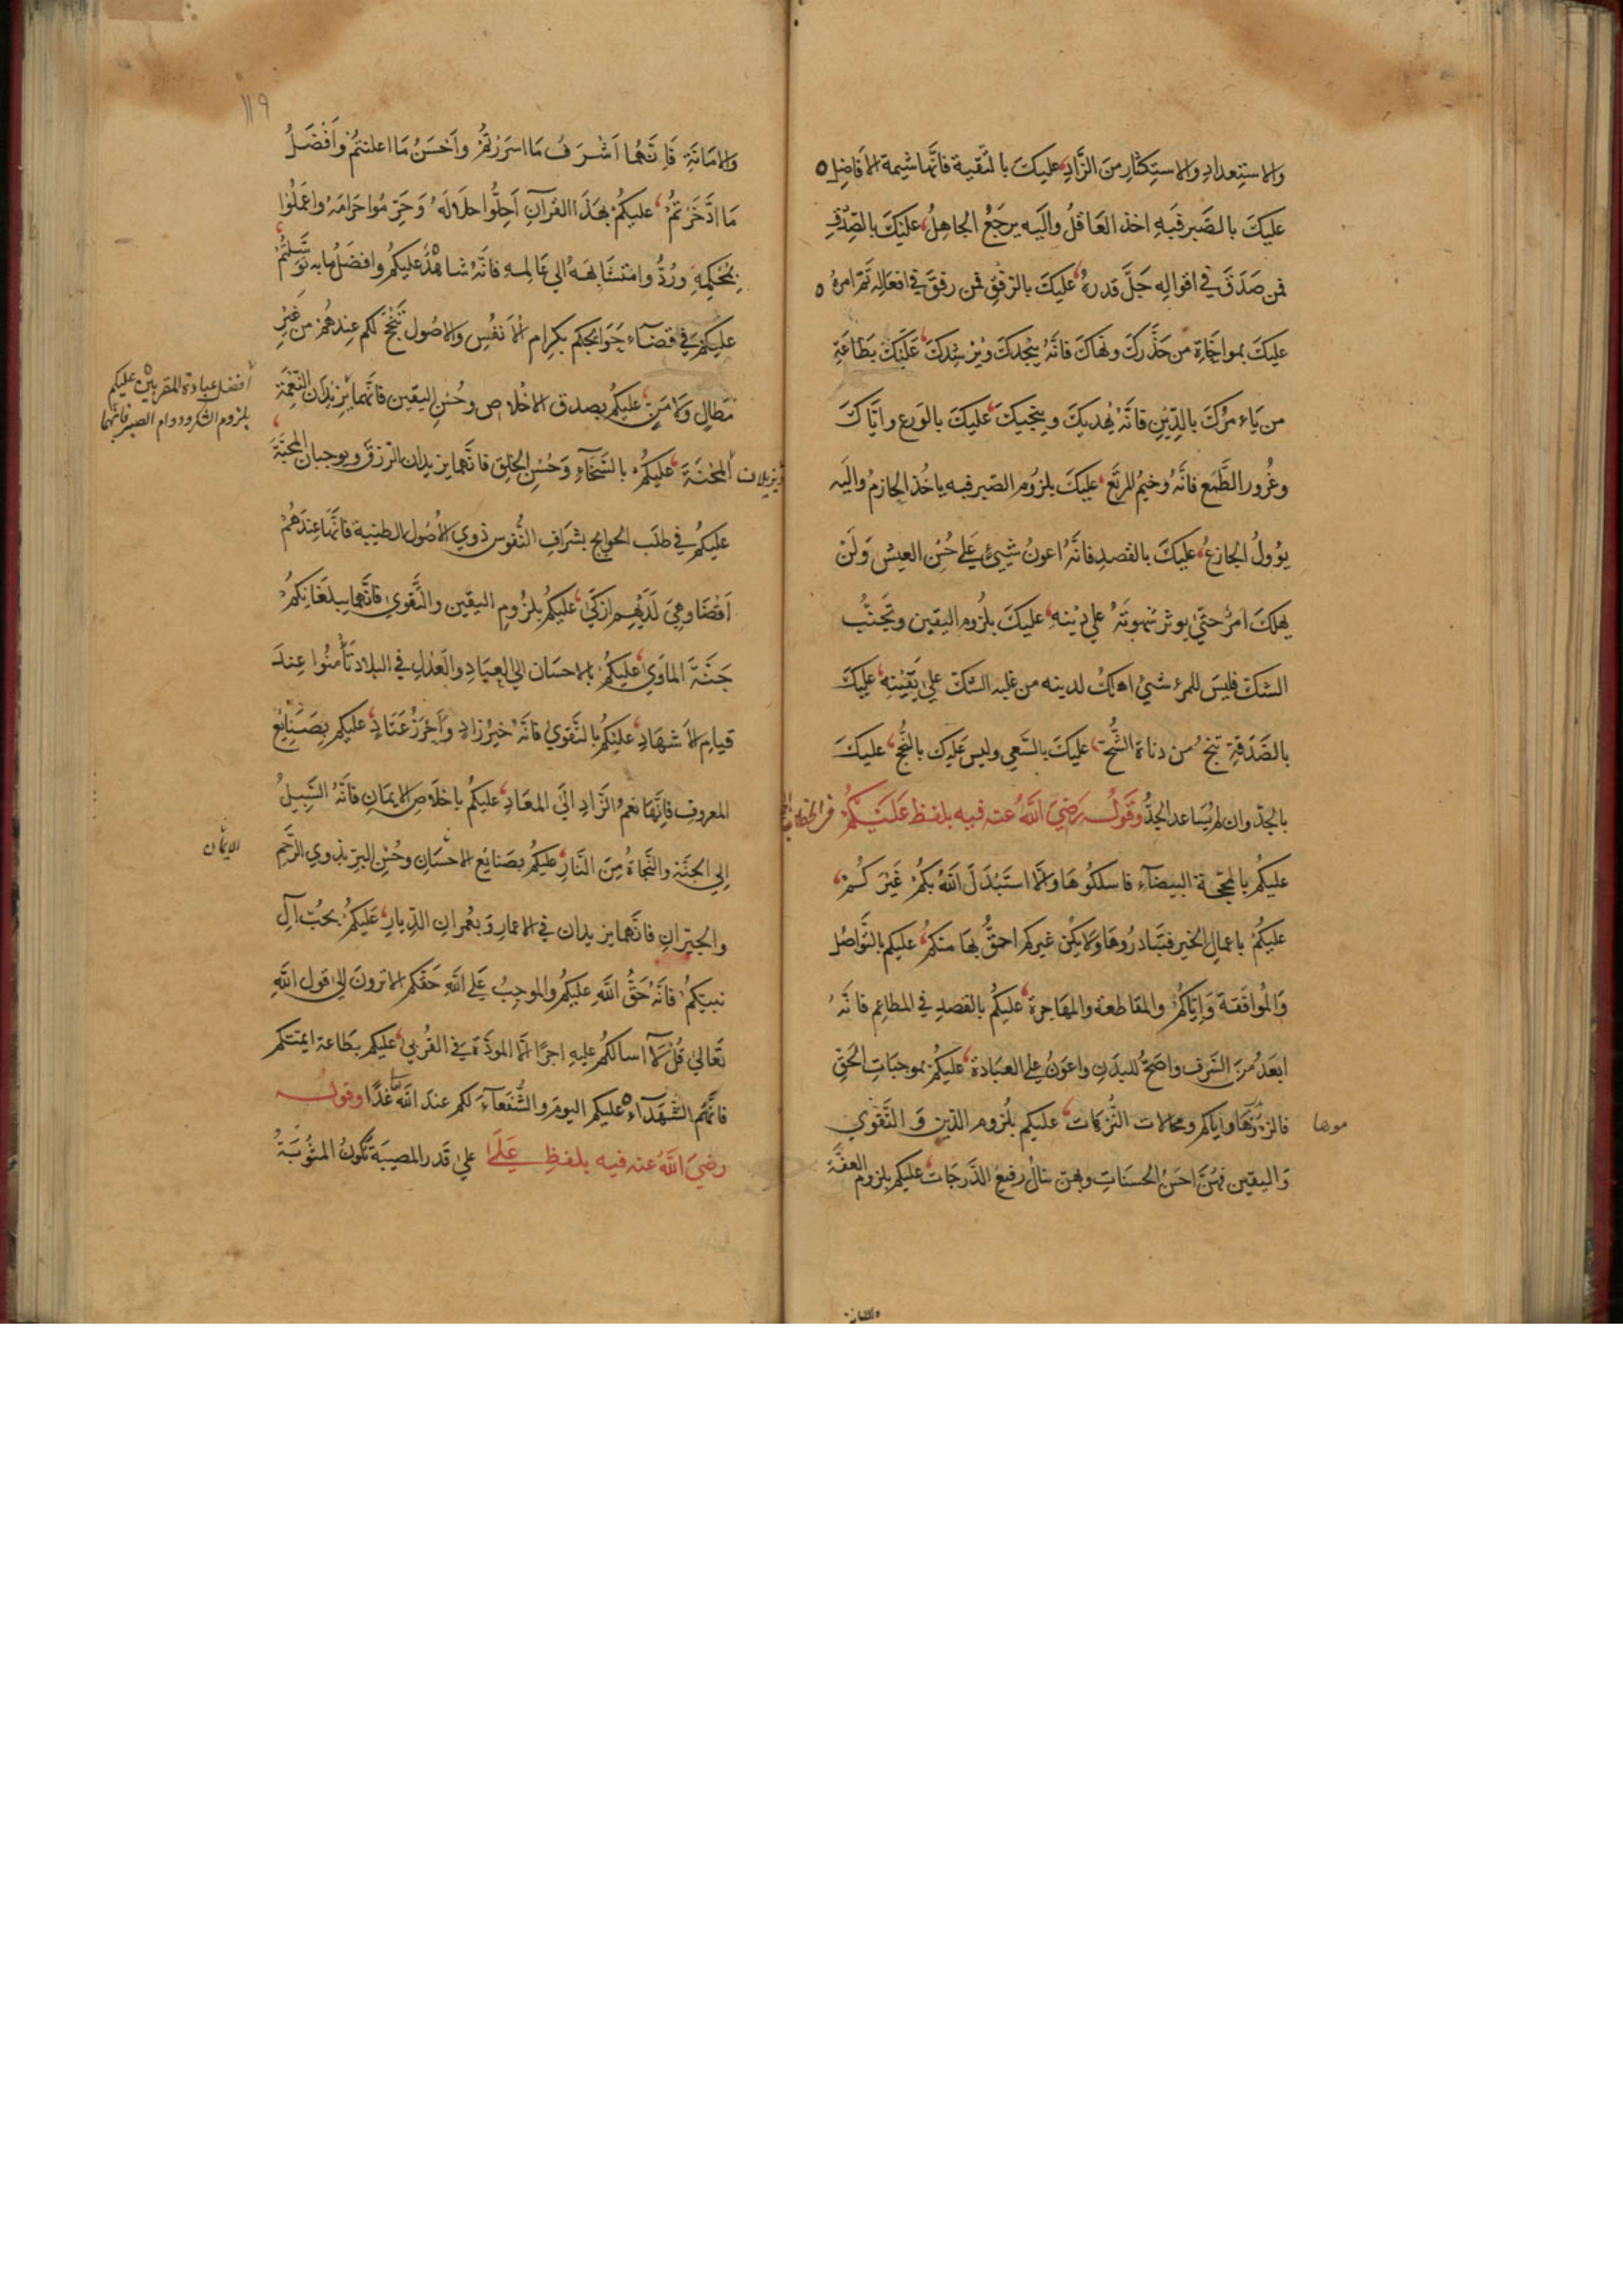 والاستعداد والاستكثار من الزَّاد، عليكَ بالتقية فانَّها شيمة الافاضل ه
عليكَ بالصَّبر فبه اخذ العاقلُ واليه يرجعُ الجاهلُ، عليكَ بالصدق
فمن صَدَق في اقواله جَلَّ قدرهُ، عليكَ بالرفق فمن رفق في افعاله تمّ امرهُ ه
عليكَ بمواخاة من حذّركَ ونهاكَ فانّهُ ينجدكَ ويُرشدكَ، عليكَ بطاعة
من ياءمركَ بالدّين فانّهُ يهديكَ وينجيكَ، عليكَ بالورع واياكَ
وغُرور الطَّمَع فانّهُ وخيمُ المرتع، عليكَ بلزوم الصبر فبه ياخُذ الحازمُ واليه
يؤولُ الجازعُ، عليكَ بالقصد فانّهُ اعونُ شيئ على حُسن العيش ولن
يهلكَ امرُؤ حتي يوثر شهوتهُ علي دينه، عليكَ بلزوم اليقين وتجنُّب
الشك فليسَ للمرء شيئ اهلكُ لدينه من غلبه الشكّ علي يقينه، عليكَ
بالصَّدقة تنجُ من دناءة الشُّح، عليكَ بالسَّعي وليس عليك بالنُّجح، عليكَ
بالجدّ وان لم يُساعد الجدُّ وقولُه رَضيَ اللهُ عنه فيه بلفظ عَليْكُمْ
عليكم بالمحجّة البيضاء فاسلكوها والّا استبدلَ اللهُ بكمْ غيركمْ،
عليكمْ باعمال الخير فتبادرُوها ولا يكُن غيركم احقُّ بها منكم، عليكم بالتَّواصُل
والموافقة واياكمْ والمقاطعة والمهاجرة، عليكم بالقصد في المطاعم فانّهُ
ابعدُ منَ السَّرف واصحُّ للبدَن واعونُ علي العبَادة، عليكمْ بموجبَات الحَق
فالزموها واياكم ومحالات التُّرهات، عليكم بلُزوم الدّين وَالتّقوي
موها
وَاليقين فهنَّ احسَنُ الحسنَات وبهنّ ينالُ رفيع الدّرجَات، عليكم بلزوم العفَّة
١١٩
والامَانَة فَانّهما اشرفُ مَا اسرَرْتُمْ وأحسَنُ مَا اعلنتُمْ وأفضَلُ
مَا ادَّخَرْتُمْ، عليكمْ بهَذا القرآن أحلُّوا حلالَهُ وَحَرِّمُوا حَرامَهُ واعمَلُوا
بمُحْكَمِه ورُدُّوا متشَابهَهُ الي عَالمه فانّهُ شاهدٌ عليكمُ وافضَلُ ما به توَسَّلتُمْ
عليكمْ في قضاء حَوَايجكم بكرام الأنفُس والاصُول تُنْجَحْ لكم عندهُم من غيْر
مَطَال وَلامَنّ، عليكمُ بصدق الاخلاص وحُسن اليقين فانّهما
أفضل عبادة المقربين عليكم
بلزوم الشكر ودوام الصبر فانّهما
يزيدان النعمَة
ويزيلان المحْنَةَ، عليكُمْ بالسَّخاء وَحُسْن الخلق فانّهما يزيدان الرزق ويوجبان المحبَّةَ
عليكُم في طلَب الحوايج بشرَاف النُّفوس ذوي الأصُول الطيّبة فانّهَا عِندَهُمْ
اَقْضَا وهيَ لدَيْهم ازكَي، عليكمُ بلزُوم اليقين والتَّقوي فانّهما يبلغَانكمْ
جَنَّةَ المأوَي، عليكمُ بالاحسَان الي العِبَاد والعَدْل في البلاد تأمَنُوا عِندَ
قيام الأشهَاد، عليكُمُ بالتَّقوي فانّهُ خيرُ زاد وأحْرَزُ عَتَاد، عليكم بصَنايع
المعروف فانّهَا نعمَ الزَّاد الَى المعَاد، عليكُم باخلاص الايمَان فانّهُ السَّبيلُ
الي الجنّة والنَّجاةُ مِنَ النَّار، عليكم بصَنايع الاحسَان وحُسْن البرّ بذوي الرَّحم
الايمان
والجيران فانّهما يزيدان في الاعمار وَيعُمران الدّيار، عليكُمْ بحُبّ آل
نبيّكمُ فانّهُ حَقُّ اللهِ عليكمُ والموجبُ عَلى اللهِ حَقكم الا ترونَ الى قول اللهِ
تَعَالي قُل لَا أسالكُم عليه اجرًا الّا المودّةَ في القُربي، عليكم بطاعة ايمتكم
فانّهم الشهَدَاءُ عليكم اليومَ والشُّفَعَاءُ لكم عندَ اللهِ غَدًا وقولُه
رضيَ اللهُ عنه فيه بلفظ عَلَى علي قَدر المصيبَة تكُونُ المثُوبَةُ